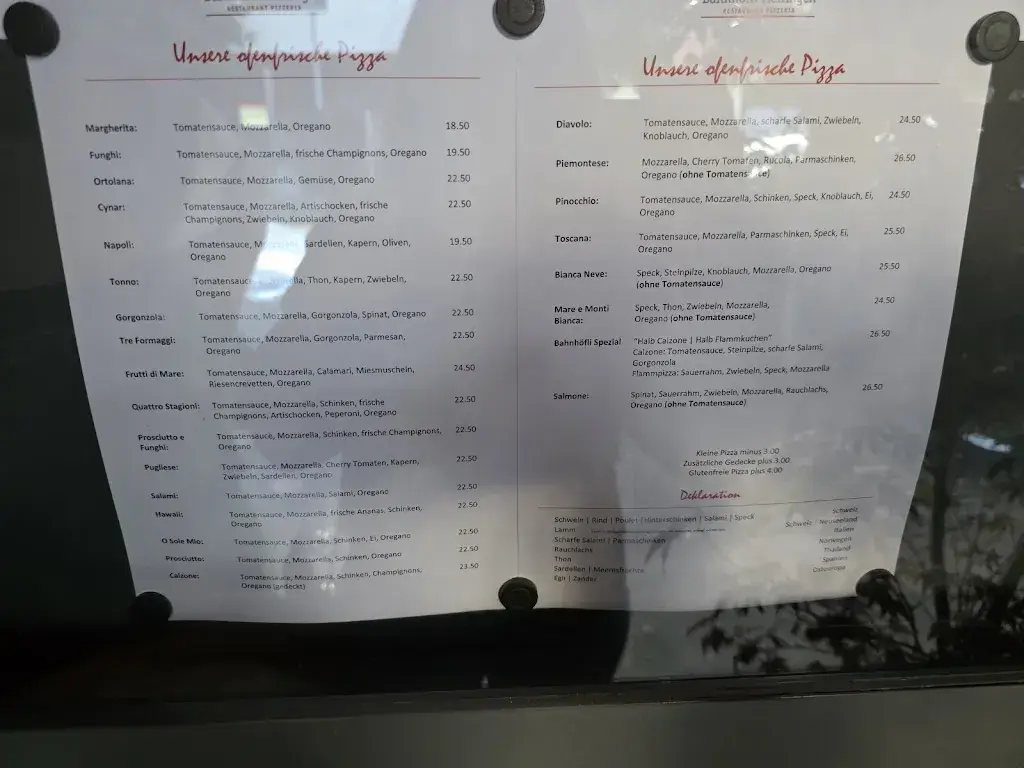 RESTAURANT PIZZERIA
Unsere ofenfrische Pizza
Margherita: Tomatensauce, Mozzarella, Oregano 18.50
Funghi: Tomatensauce, Mozzarella, frische Champignons, Oregano 19.50
Ortolana: Tomatensauce, Mozzarella, Gemüse, Oregano 22.50
Cynar: Tomatensauce, Mozzarella, Artischocken, frische 22.50
Champignons, Zwiebeln, Knoblauch, Oregano
Napoli: Tomatensauce, Mozzarella, Sardellen, Kapern, Oliven, 19.50
Oregano
Tonno: Tomatensauce, Mozzarella, Thon, Kapern, Zwiebeln, 22.50
Oregano
Gorgonzola: Tomatensauce, Mozzarella, Gorgonzola, Spinat, Oregano 22.50
Tre Formaggi: Tomatensauce, Mozzarella, Gorgonzola, Parmesan, 22.50
Oregano
Frutti di Mare: Tomatensauce, Mozzarella, Calamari, Miesmuscheln, 24.50
Riesencrevetten, Oregano
Quattro Stagioni: Tomatensauce, Mozzarella, Schinken, frische 22.50
Champignons, Artischocken, Peperoni, Oregano
Prosciutto e Tomatensauce, Mozzarella, Schinken, frische Champignons, 22.50
Funghi: Oregano
Pugliese: Tomatensauce, Mozzarella, Cherry Tomaten, Kapern, 22.50
Zwiebeln, Sardellen, Oregano
Salami: Tomatensauce, Mozzarella, Salami, Oregano 22.50
Hawaii: Tomatensauce, Mozzarella, frische Ananas, Schinken, 22.50
Oregano
O Sole Mio: Tomatensauce, Mozzarella, Schinken, Ei, Oregano 22.50
Prosciutto: Tomatensauce, Mozzarella, Schinken, Oregano 22.50
Calzone: Tomatensauce, Mozzarella, Schinken, Champignons, 23.50
Oregano (gedeckt)
RESTAURANT PIZZERIA
Unsere ofenfrische Pizza
Diavolo: Tomatensauce, Mozzarella, scharfe Salami, Zwiebeln, 24.50
Knoblauch, Oregano
Piemontese: Mozzarella, Cherry Tomaten, Rucola, Parmaschinken, 26.50
Oregano (ohne Tomatensauce)
Pinocchio: Tomatensauce, Mozzarella, Schinken, Speck, Knoblauch, Ei, 24.50
Oregano
Toscana: Tomatensauce, Mozzarella, Parmaschinken, Speck, Ei, 25.50
Oregano
Bianca Neve: Speck, Steinpilze, Knoblauch, Mozzarella, Oregano 25.50
(ohne Tomatensauce)
Mare e Monti Speck, Thon, Zwiebeln, Mozzarella, 24.50
Bianca: Oregano (ohne Tomatensauce)
Bahnhöfli Spezial "Halb Calzone | Halb Flammkuchen" 26.50
Calzone: Tomatensauce, Steinpilze, scharfe Salami,
Gorgonzola
Flammpizza: Sauerrahm, Zwiebeln, Speck, Mozzarella
Salmone: Spinat, Sauerrahm, Zwiebeln, Mozzarella, Rauchlachs, 26.50
Oregano (ohne Tomatensauce)
Kleine Pizza minus 3.00
Zusätzliche Gedecke plus 3.00
Glutenfreie Pizza plus 4.00
Deklaration
Schwein | Rind | Poulet | Hinterschinken | Salami | Speck Schweiz
Lamm Schweiz | Neuseeland
Scharfe Salami | Parmaschinken Italien
Rauchlachs Norwegen
Thon Thailand
Sardellen | Meeresfrüchte Spanien
Egli | Zander Osteuropa